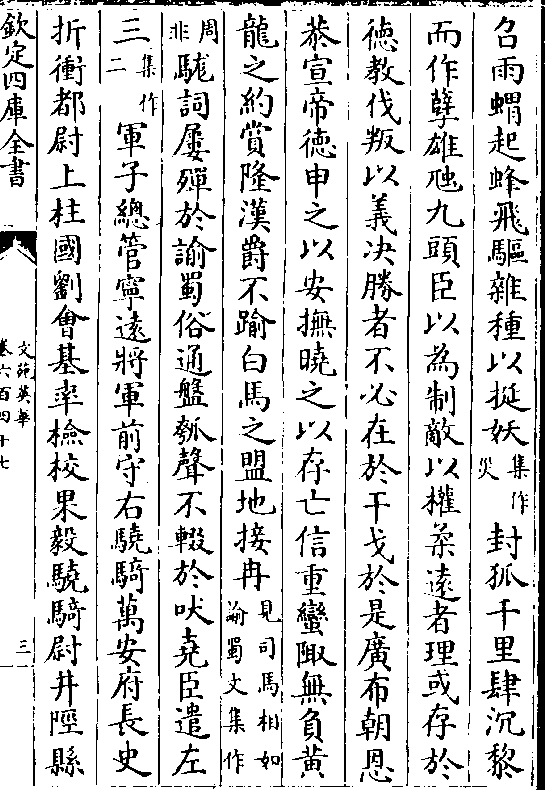 召雨蝟起蜂飛驅雜種以挺妖集作災封狐千里肆沉黎
而作孽雄虺九頭臣以為制敵以權柔遠者理或存於
徳教伐叛以義决勝者不必在於干戈於是廣布朝恩
恭宣帝徳申之以安撫曉之以存亡信重蠻陬無負黄
龍之約賞隆漢爵不踰白馬之盟地接冉見司馬相如諭蜀文集作
周非駹詞屢殫於諭蜀俗通盤瓠聲不輟於吠堯臣遣左
三集作二軍子總管寧遠將軍前守右驍騎萬安府長史
折衝都尉上柱國劉㑹基率檢校果毅驍騎尉井陘縣
欽定四庫全書
文苑英華
卷六百四十七
三